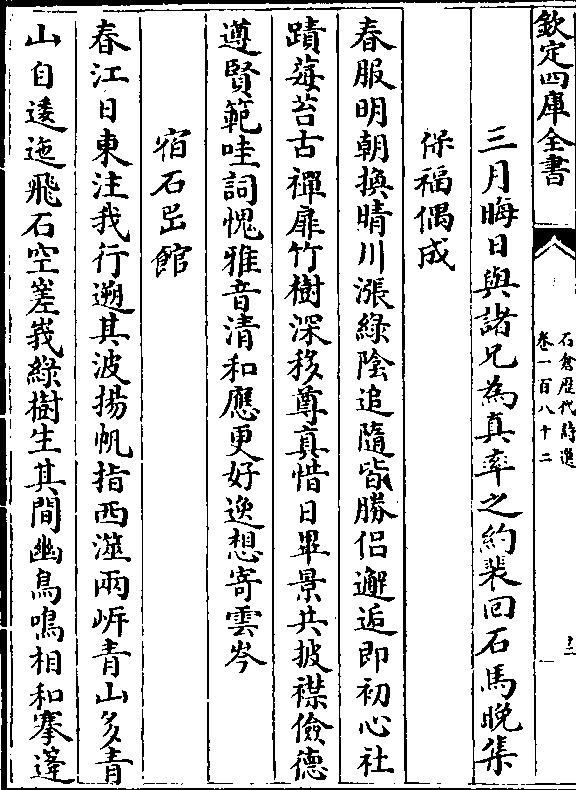 欽定四庫全書
石倉歴代詩選
卷一百八十二
三月晦日與諸兄為真率之約裴回石馬晚集
保福偶成
春服明朝換晴川漲綠陰追隨皆勝侣邂逅即初心社
蹟莓苔古禪扉竹樹深移尊真惜日畢景共披襟儉德
遵賢範哇詞愧雅音清和應更好逸想寄雲岑
宿石嵒館
春江日東注我行遡其波揚帆指西澨兩㟁青山多青
山自逶迤飛石空嵳峩綠樹生其間幽鳥鳴相和搴蓬